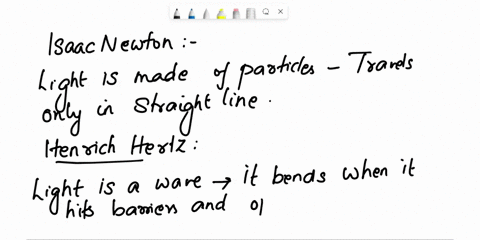 Isaac Newton :-
Light is made of particles - Travels
only in straight line.
Henrich Hertz :
Light is a wave → it bends when it
hits barriers and